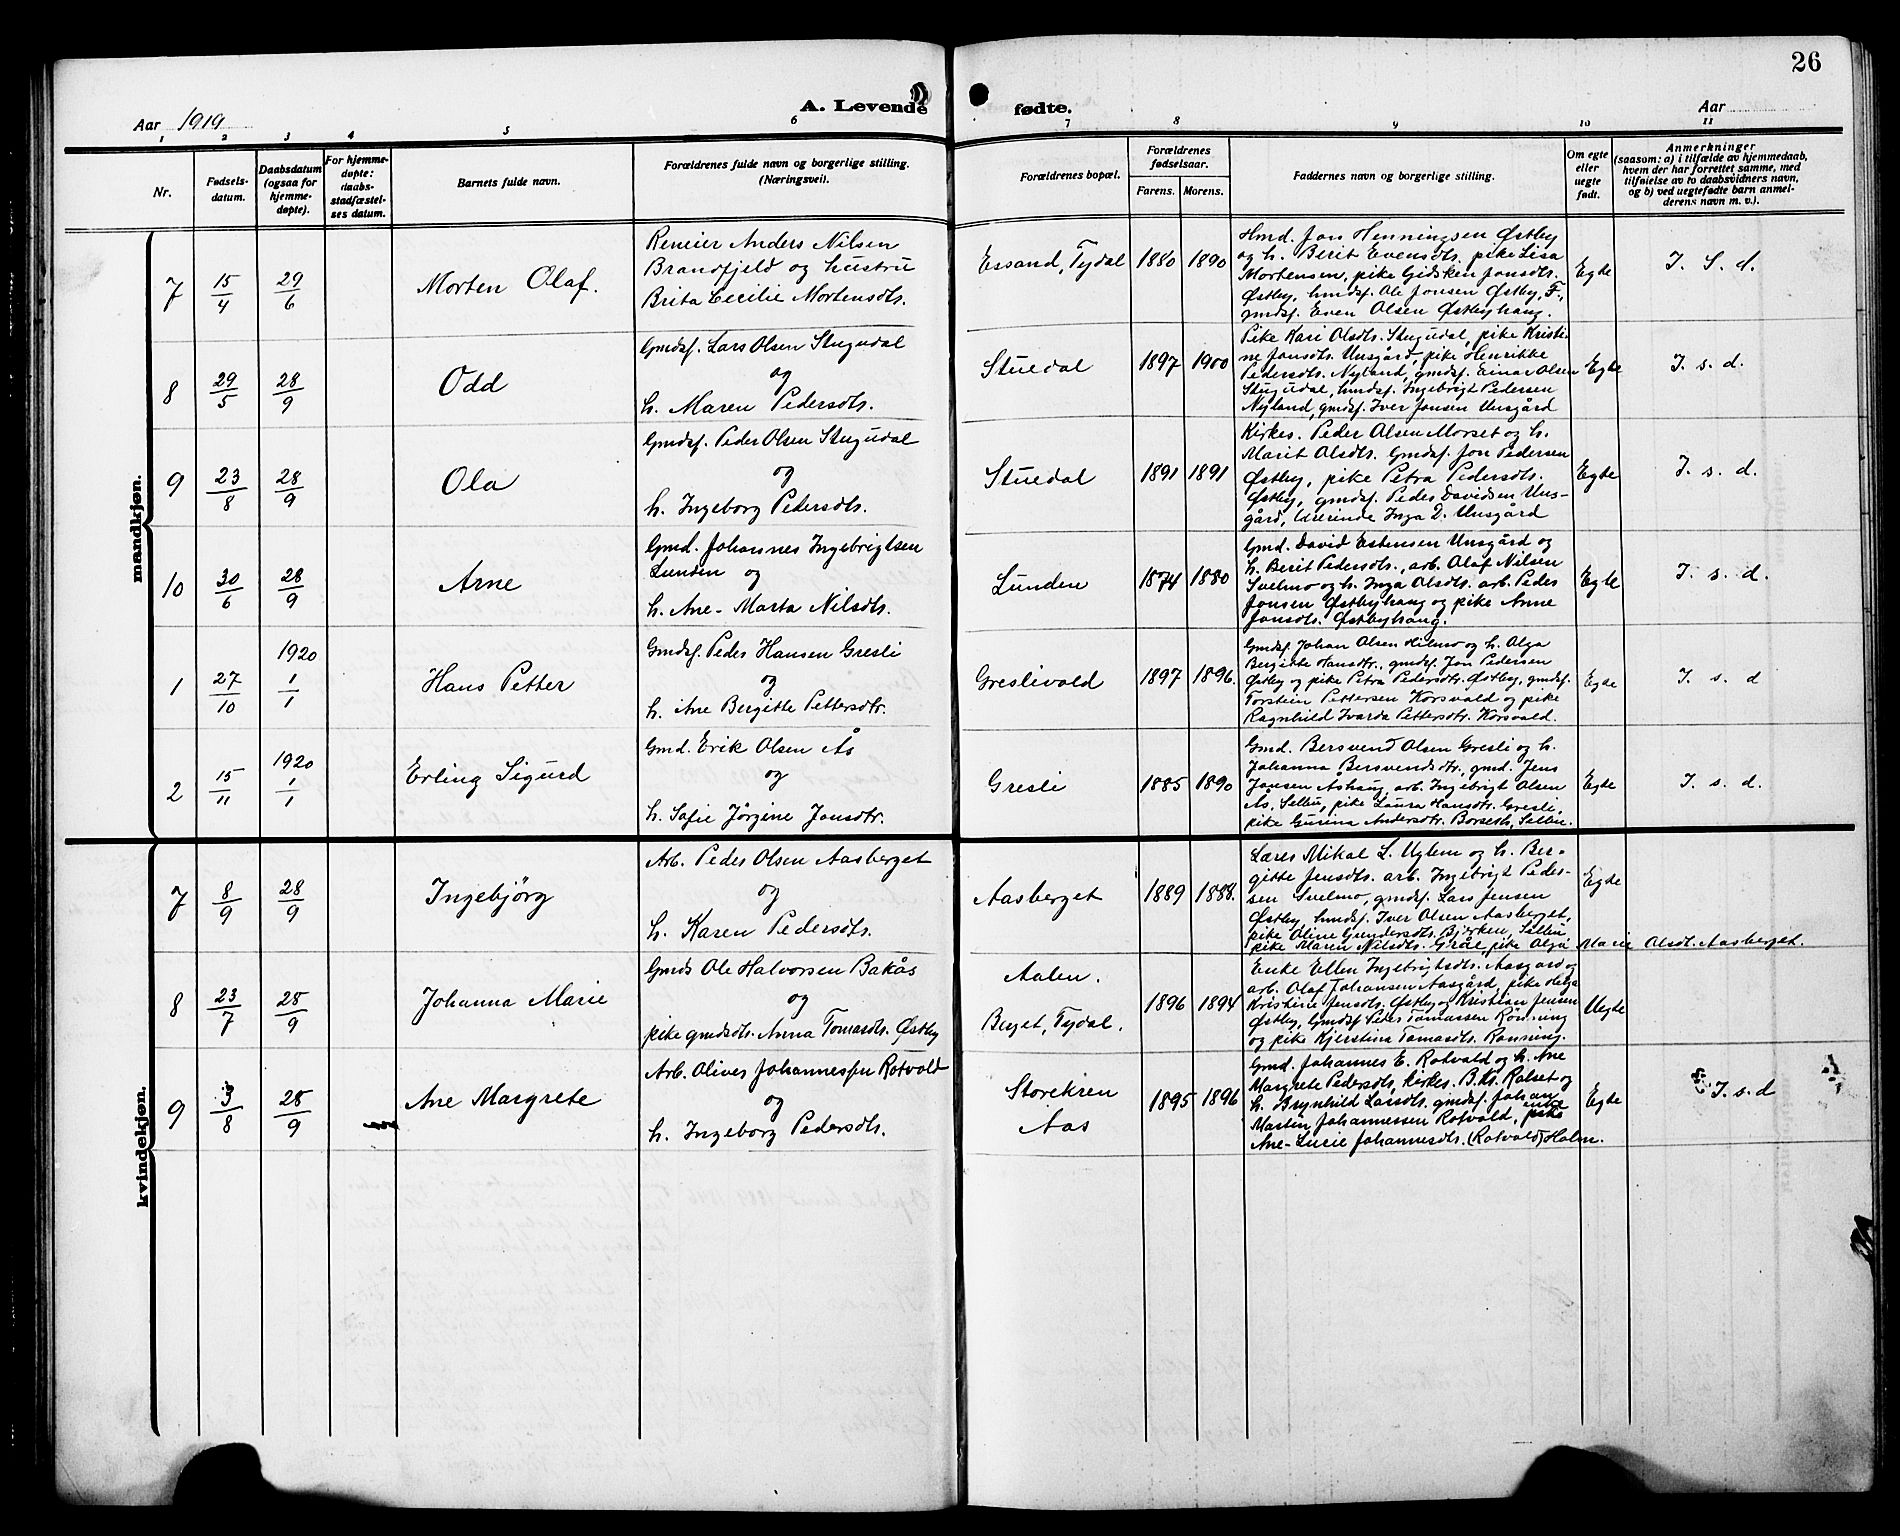 26
Aar 1919
A. Levende fødte.
Aar
1 2 3 4 5 6 7 8 9 10 11
Nr.
Fødsels-
datum.
Daabsdatum
(ogsaa for
hjemme-
døpte).
For hjemme-
døpte:
daabs-
stadfæstel-
ses datum.
Barnets fulde navn.
Forældrenes fulde navn og borgerlige stilling.
(Næringsvei).
Forældrenes bopæl.
Forældrenes
fødselsaar.
Farens. Morens.
Faddernes navn og borgerlige stilling.
Om egte
eller
uegte
født.
Anmerkninger
(saasom: a) i tilfælde av hjemmedaab,
hvem der har forrettet samme, med
tilføielse av to daabsvidners navn,
og b) ved uegtefødte barn anmel-
derens navn m. v.).
mandkjøn.
7 15/4 29/6 Morten Olaf.
Reneier Anders Nilsen
Brandfjeld og hustru
Brita Cecilie Mortensdtr.
Essand, Tydal 1880 1890
Hmd. Jon Henningsen Østby
og h. Berit Evensdtr. pike Lisa
Mortensen, pike Gidsken Jonsdtr.
Østby, hmdsf. Ole Jonsen Østby, F.,
gmdsf. Even Olsen Østbyhaug.
Egte I. S. d.
8 29/5 28/9 Odd
Gmdsf. Lars Olsen Stugudal
og
h. Maren Pedersdtr.
Stuedal 1897 1900
Pike Kari Olsdtr. Stugudal, pike Kristi-
ne Jonsdtr. Unsgård, pike Henrikke
Pedersdtr. Nyland, gmdsf. Einar Olsen
Stugudal, hmdsf. Ingebrigt Pedersen
Nyland, gmdsf. Iver Jonsen Unsgård
Egte I. s. d.
9 23/8 28/9 Ola
Gmdsf. Peder Olsen Stugudal
og
h. Ingeborg Pedersdtr.
Stuedal 1891 1891
Kirkes. Peder Olsen Morset og h.
Marit Olsdtr. Gmdsf. Jon Pedersen
Østby, pike Petra Pedersdtr.
Østby, gmdsf. Peder Davidsen Uns-
gård, lærerinde Inga D. Unsgård
Egte I. s. d.
10 30/6 28/9 Arne
Gmd. Johannes Ingebrigtsen
Lunden og
h. Ane-Marta Nilsdtr.
Lunden 1874 1880
Gmd. David Estensen Unsgård og
h. Berit Pedersdtr., arb. Olaf Nilsen
Svelmo og h. Inga Olsdtr. arb. Peder
Jonsen Østbyhaug og pike Anne
Jonsdtr. Østbyhaug.
Egte I. s. d.
1 27/10 1920 1/1 Hans Petter
Gmdsf. Peder Hansen Gresli
og
h. Ane Bergitte Pettersdtr.
Greslivold 1897 1896.
Gmdsf. Johan Olsen Hilmo og h. Olga
Bergitte Hansdtr., gmdsf. Jon Pedersen
Østby og pike Petra Pedersdtr. Østby, gmdsf.
Torstein Pettersen Korsvald og pike
Ragnhild Ivarda Pettersdtr. Korsvald.
Egte I. s. d
2 15/11 1920 1/1 Erling Sigurd
Gmd. Erik Olsen Ås
og
h. Sofie Jörgine Jonsdtr.
Gresli 1885 1890
Gmd. Bersvend Olsen Gresli og h.
Johanna Bersvendsdtr., gmd. Jens
Jensen Åshaug, arb. Ingebrigt Olsen
Ås, Selbu, pike Laura Hansdtr. Gresli,
pike Gurina Andersdtr. Borseth, Selbu.
Egte I. s. d.
kvindekjøn.
7 8/9 28/9 Ingebjörg
Arb. Peder Olsen Aasberget
og
h. Karen Pedersdtr.
Aasberget 1889 1888.
Lærer Mikal L. Uglem og h. Ber-
gitte Jensdtr. arb. Ingebrigt Peder-
sen Svelmo, gmdsf. Lars Jensen
Østby, hmdsf. Iver Olsen Aasberget,
pike Oline Gundersdtr. Björken, Selbu,
pike Maren Nilsdtr. Gröe, pike Olga Marie Olsdt. Aasberget.
Egte
8 23/7 28/9 Johanna Marie
Gmds Ole Halvorsen Bakås
og
pike gmdsdtr. Anna Tomasdtr. Østby
Aalen.
Berget, Tydal.
1896 1894
Enke Ellen Ingebrigtsdtr. Aasgård og
arb. Olaf Johansen Aasgård, pike Helga
Kristine Jensdtr. Østby og Kristian Jensen
Østby, Gmdsf Peder Tomassen Rönning
og pike Kjerstina Tomasdtr. Rönning.
Uegte
9 3/8 28/9 Ane Margrete
Arb. Oliver Johannessen Rotvold
og
h. Ingeborg Pedersdtr.
Storekren
Aas
1895 1896
Gmd. Johannes E. Rotvald og h. Ane
Margrete Pedersdtr, Kirkes. B. Ks. Rolset og
h. Brynhild Larsdtr. gmdsf. Johan
Martin Johannessen Rotvald, enke
Ane-Lucie Johannesdtr. (Rotvald) Holm.
Egte I. s. d